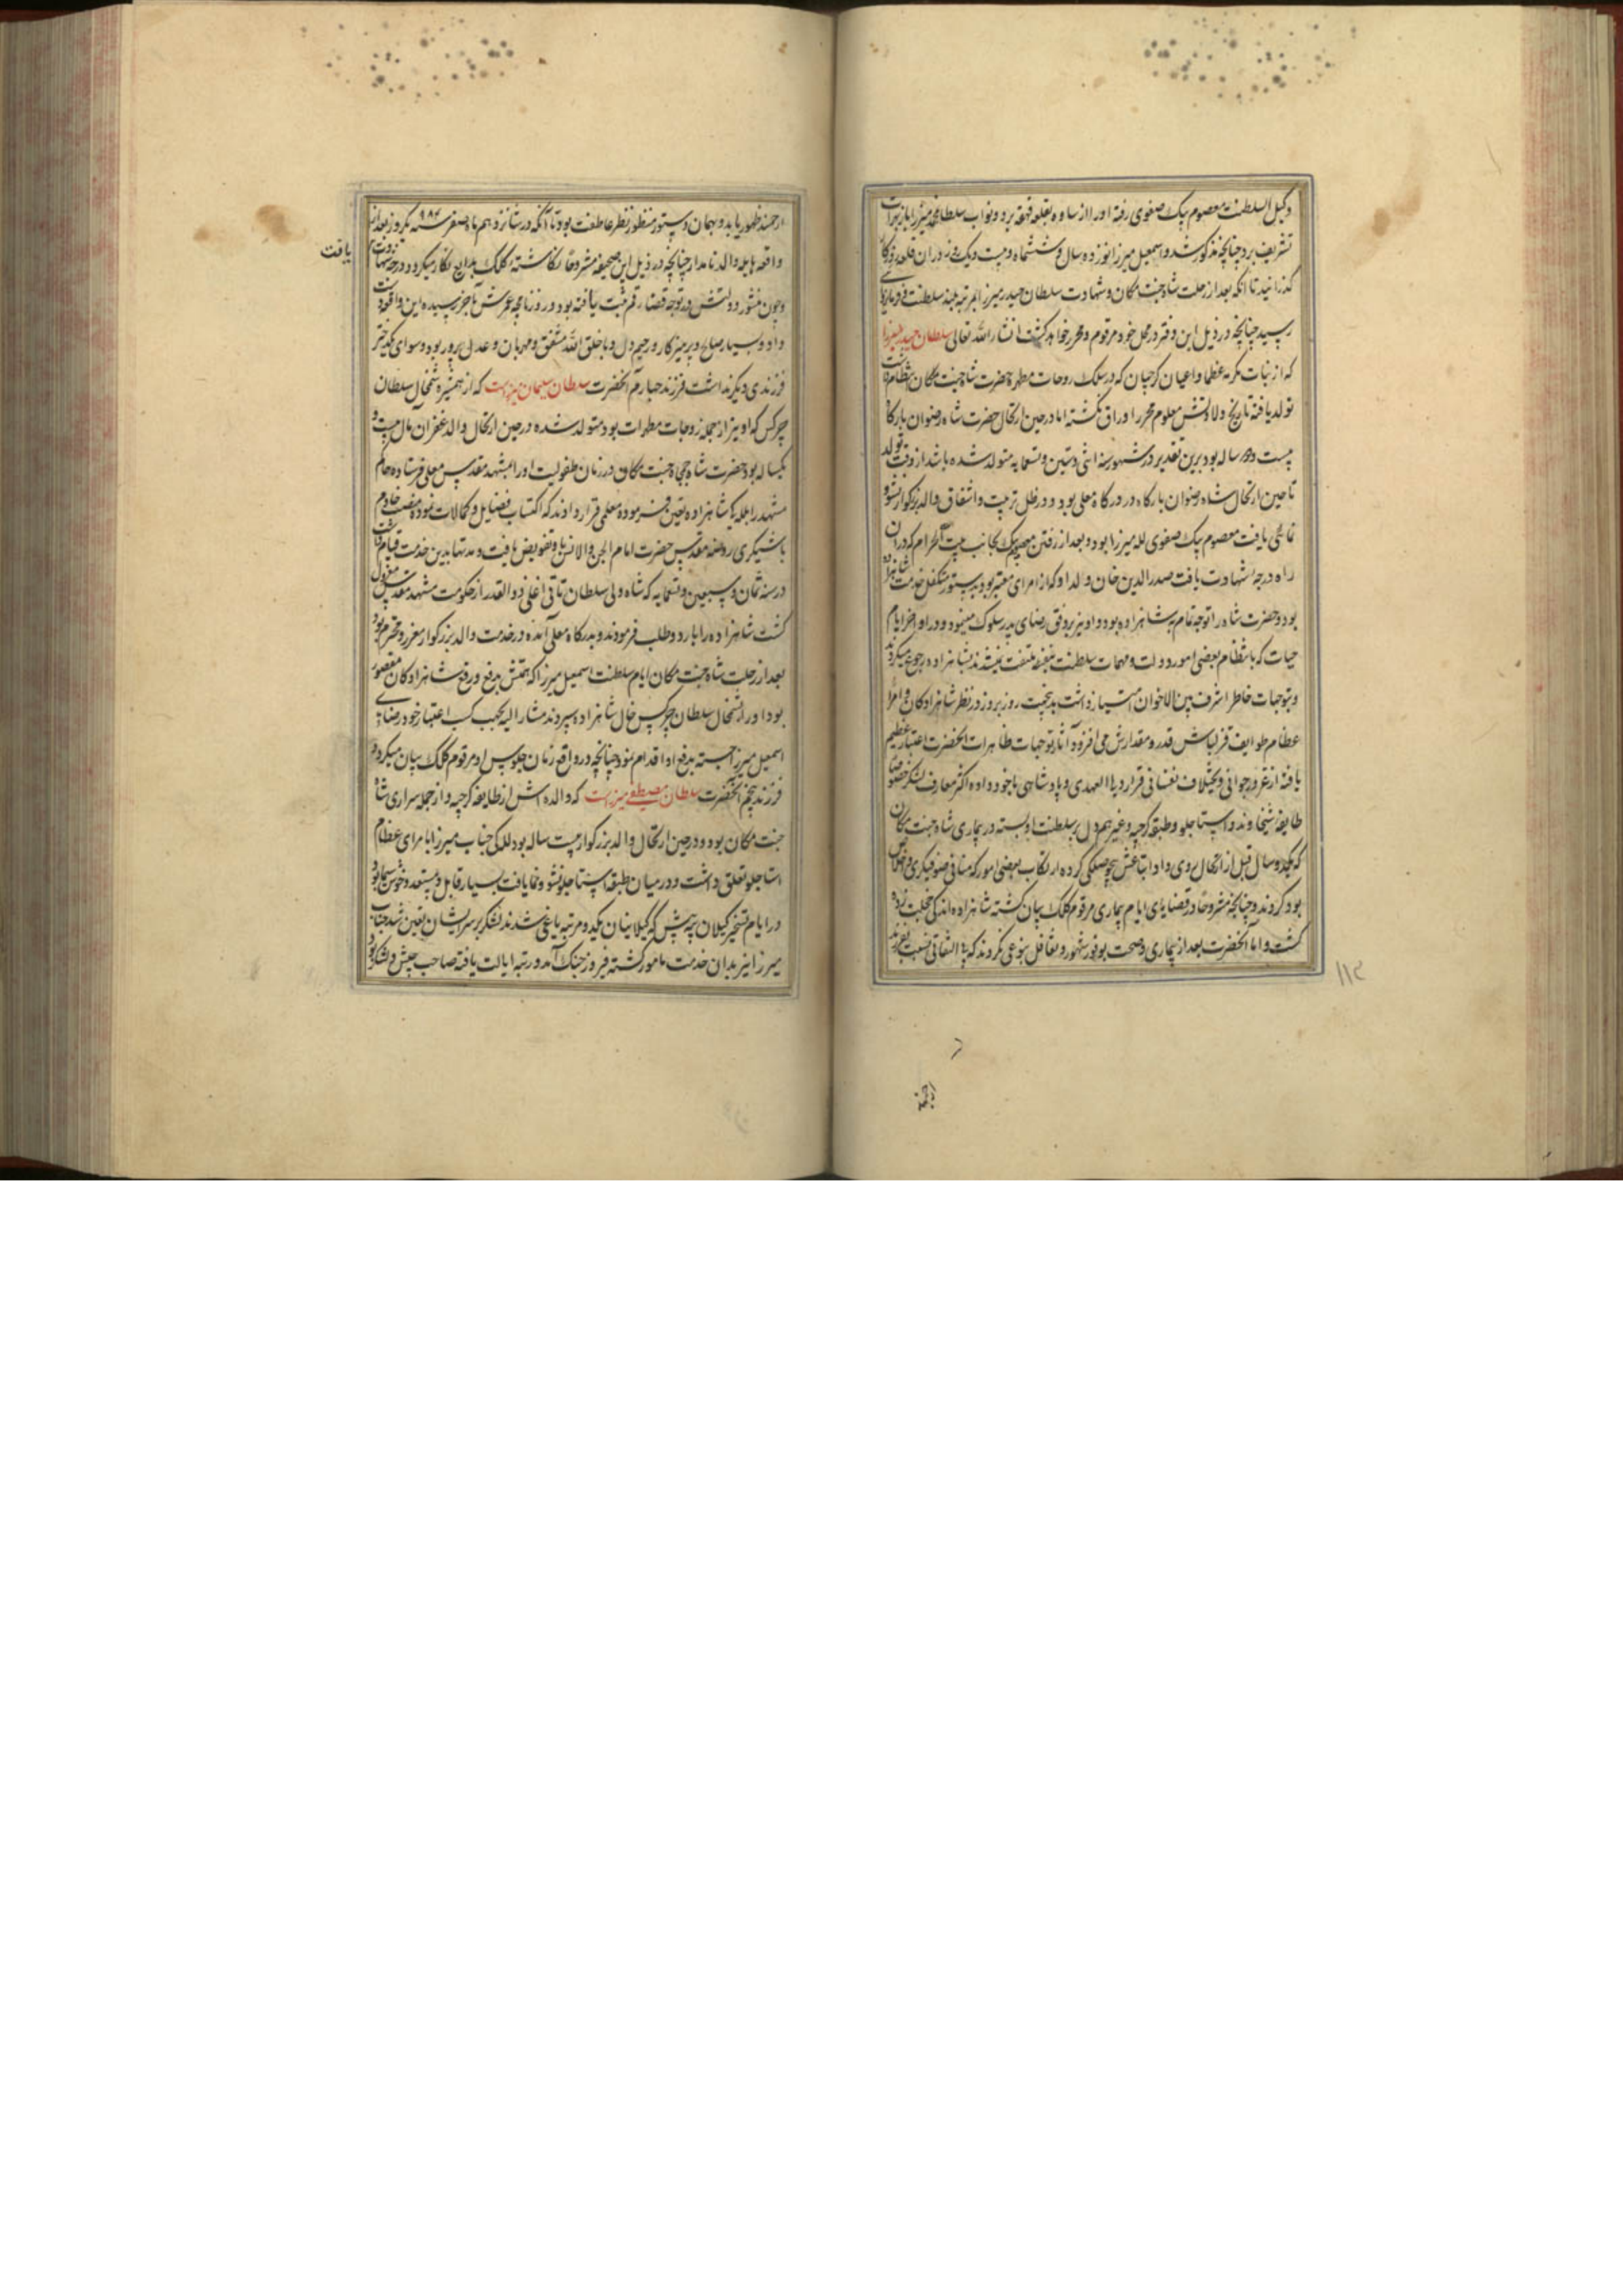 وکیل السلطنت معصوم بیک صفوی رفته او را از ساوه بقلعه قهقهه برد و نواب سلطان محمد میرزا باز بهرات
تشریف برد چنانچه مذکور شد و اسمعیل میرزا نوزده سال و ششماه و بیست و یک روز در ان قلعه روزکار
گذرانید تا انکه بعد از رحلت شاه جنت مکان و شهادت سلطان حیدر میرزا بمرتبه بلند سلطنت و فرمانروایی
رسید چنانچه در ذیل این دفتر در محل خود مرقوم و محرر خواهد کشت انشاء الله تعالی سلطان حیدر میرزا
که از بنات مکرمه عظما و اعیان کرجیان که در سلک زوجات مطهره حضرت شاه جنت مکان انتظام داشت
تولد یافته تاریخ ولادتش معلوم محرر اوراق نکشته اما در حین ارتحال حضرت شاه رضوان بارکاه
بیست و دو ساله بود برین تقدیر در شهور سنه اثنی و ستین و تسعمایه متولد شده باشد از وقت تولد
تا حین ارتحال شاه رضوان بارکاه در درکاه معلی بود و در ظل تربیت و اشفاق والد بزرکوار نشو و
نمائی یافت معصوم بیک صفوی لله میرزا بود و بعد از رفتن معصوم بیک بجانب بیت الحرام که در ان
راه درجه شهادت یافت صدر الدین خان ولد او که از امرای معتبر بود بدستور متکفل خدمت شاهزاده
بود و حضرت شاه را توجه تمام بشاهزاده بود و او نیز بر وفق رضای پدر سلوک مینمود و در اواخر ایام
حیات که بانتظام بعضی امور دولت و مهمات سلطنت بنفسه ملتفت نمیشدند بشاهزاده رجوع میکردند
و بتوجهات خاطر اشرف بین الاخوان امتیاز داشت بدینجهت روز بروز در نظر شاهزادکان و امرا
عظام طوایف قزلباش قدر و مقدارش می افزود و آثار توجهات ظاهرات انحضرت اعتبار عظیم
یافته از غرور جوانی و تخیلات نفسانی قرار ولیعهدی و پادشاهی با خود داده اکثر معارف لشکر خصوصا
طایفه شیخاوند و استاجلو و طبقه کرجیه و غیرهم دل بر سلطنت او بسته در بیماری شاه جنت مکان
که یکدو سال قبل از ارتحال روی داد اتباعش بیحوصلکی کرده ارتکاب بعضی امور که منافی صوفیکری و اخلاص
بود کردند و چنانچه مشروحا در قضایای ایام بیماری مرقوم کلک بیان کشته شاهزاده اندکی خجلت زده
کشت و اما انحضرت بعد از بیماری و صحت بوفور شهور و تغافل بنوعی نکردند که بی التفاتی نسبت بفرزند
۱۱۲
ارجمند ظهور یابد و بهمان دستور منظور نظر عاطفت بود تا انکه در شانزدهم ماه صفر سنه ۹۸۴ یکروز بعد از
واقعه هایله والد نامدار چنانچه در ذیل این صحیفه مشروحا نکاشته کلک بدایع نکار میکردد درجه شهادت
یافت
و چون منشور دولتش در توجه قضا رقم ثبت یافته بود و روزنامچه عمرش باخر رسیده این واقعه
داد و بسیار صالح و پرهیزکار و رحیم دل و با خلق الله مشفق و مهربان و عدل پرور بود و سوای یکدختر
فرزندی دیکر نداشت فرزند چهارم انحضرت سلطان سلیمان میرزاست که از همشیره شمخال سلطان
چرکس که او نیز از جمله زوجات مطهرات بود متولد شده در حین ارتحال والد غفران مآل بیست و
یکساله بود حضرت شاه جمجاه جنت مکان در زمان طفولیت او را بمشهد مقدس معلی فرستاده حاکم
مشهد را بلله کی شاهزاده تعیین فرموده معلمی قرار دادند که اکتساب فضایل و کمالات نموده منصب خادم
باشیکری روضه مقدس حضرت امام الجن و الانس باو تفویض یافت و مدتها بدین خدمت قیام داشت
در سنه ثمان و سبعین و تسعمایه که شاه ولی سلطان تاتی اغلی ذوالقدر از حکومت مشهد مقدس معزول
کشت شاهزاده را باردو طلب فرمودند و بدرکاه معلی آمده در خدمت والد بزرکوار معزز و محترم بود
بعد از رحلت شاه جنت مکان ایام سلطنت اسمعیل میرزا که همتش بدفع و رفع شاهزادکان مقصور
بود او را بشمخال سلطان چرکس خال شاهزاده سپردند مشار الیه بجهت کسب اعتبار خود و رضای
اسمعیل میرزا جسته بدفع او اقدام نمود چنانچه در وقایع زمان جلوس او مرقوم کلک بیان میکردد
فرزند پنجم انحضرت سلطان مصطفی میرزاست که والده اش از طایفه کرجیه و از جمله سراری شاه
جنت مکان بود و در حین ارتحال والد بزرکوار بیست ساله بود للکی جناب میرزا بامرای عظام
استاجلو تعلق داشت و در میان طبقه استاجلو نشو و نما یافت بسیار قابل و مستعد و خوش سیما بود
در ایام تسخیر کیلان بیه پیش که کیلانیان یکدو مرتبه یاغی شدند لشکر بر سر ایشان تعین شد جناب
میرزا نیز بدان خدمت مامور کشته فیروز جنک آمد و رتبه ایالت یافته صاحب جیش و لشکر بود